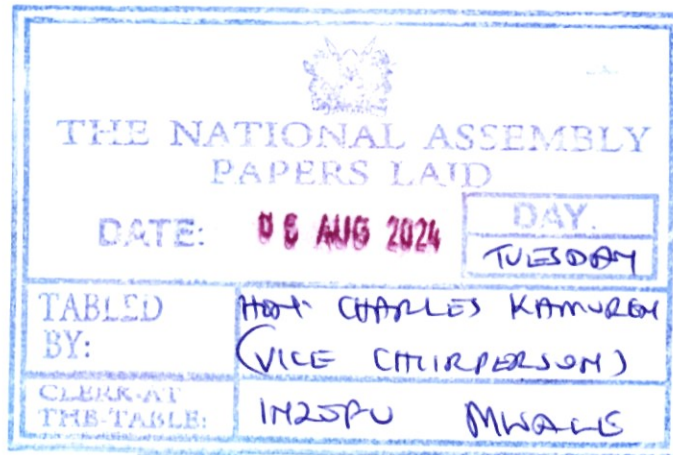 THE NATIONAL ASSEMBLY
PAPERS LAID
DATE: 06 AUG 2024
DAY.
TUESDAY
TABLED BY:
HON. CHARLES KAMUREN
(VICE CHAIRPERSON)
CLERK-AT
THE-TABLE:
INZOFU MWALE